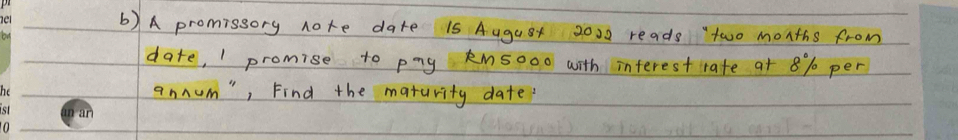 b) A promissory note date 15 August 2022 reads "two months from
date, I promise to pay RM5000 with interest rate at 8% per
annum", Find the maturity date.